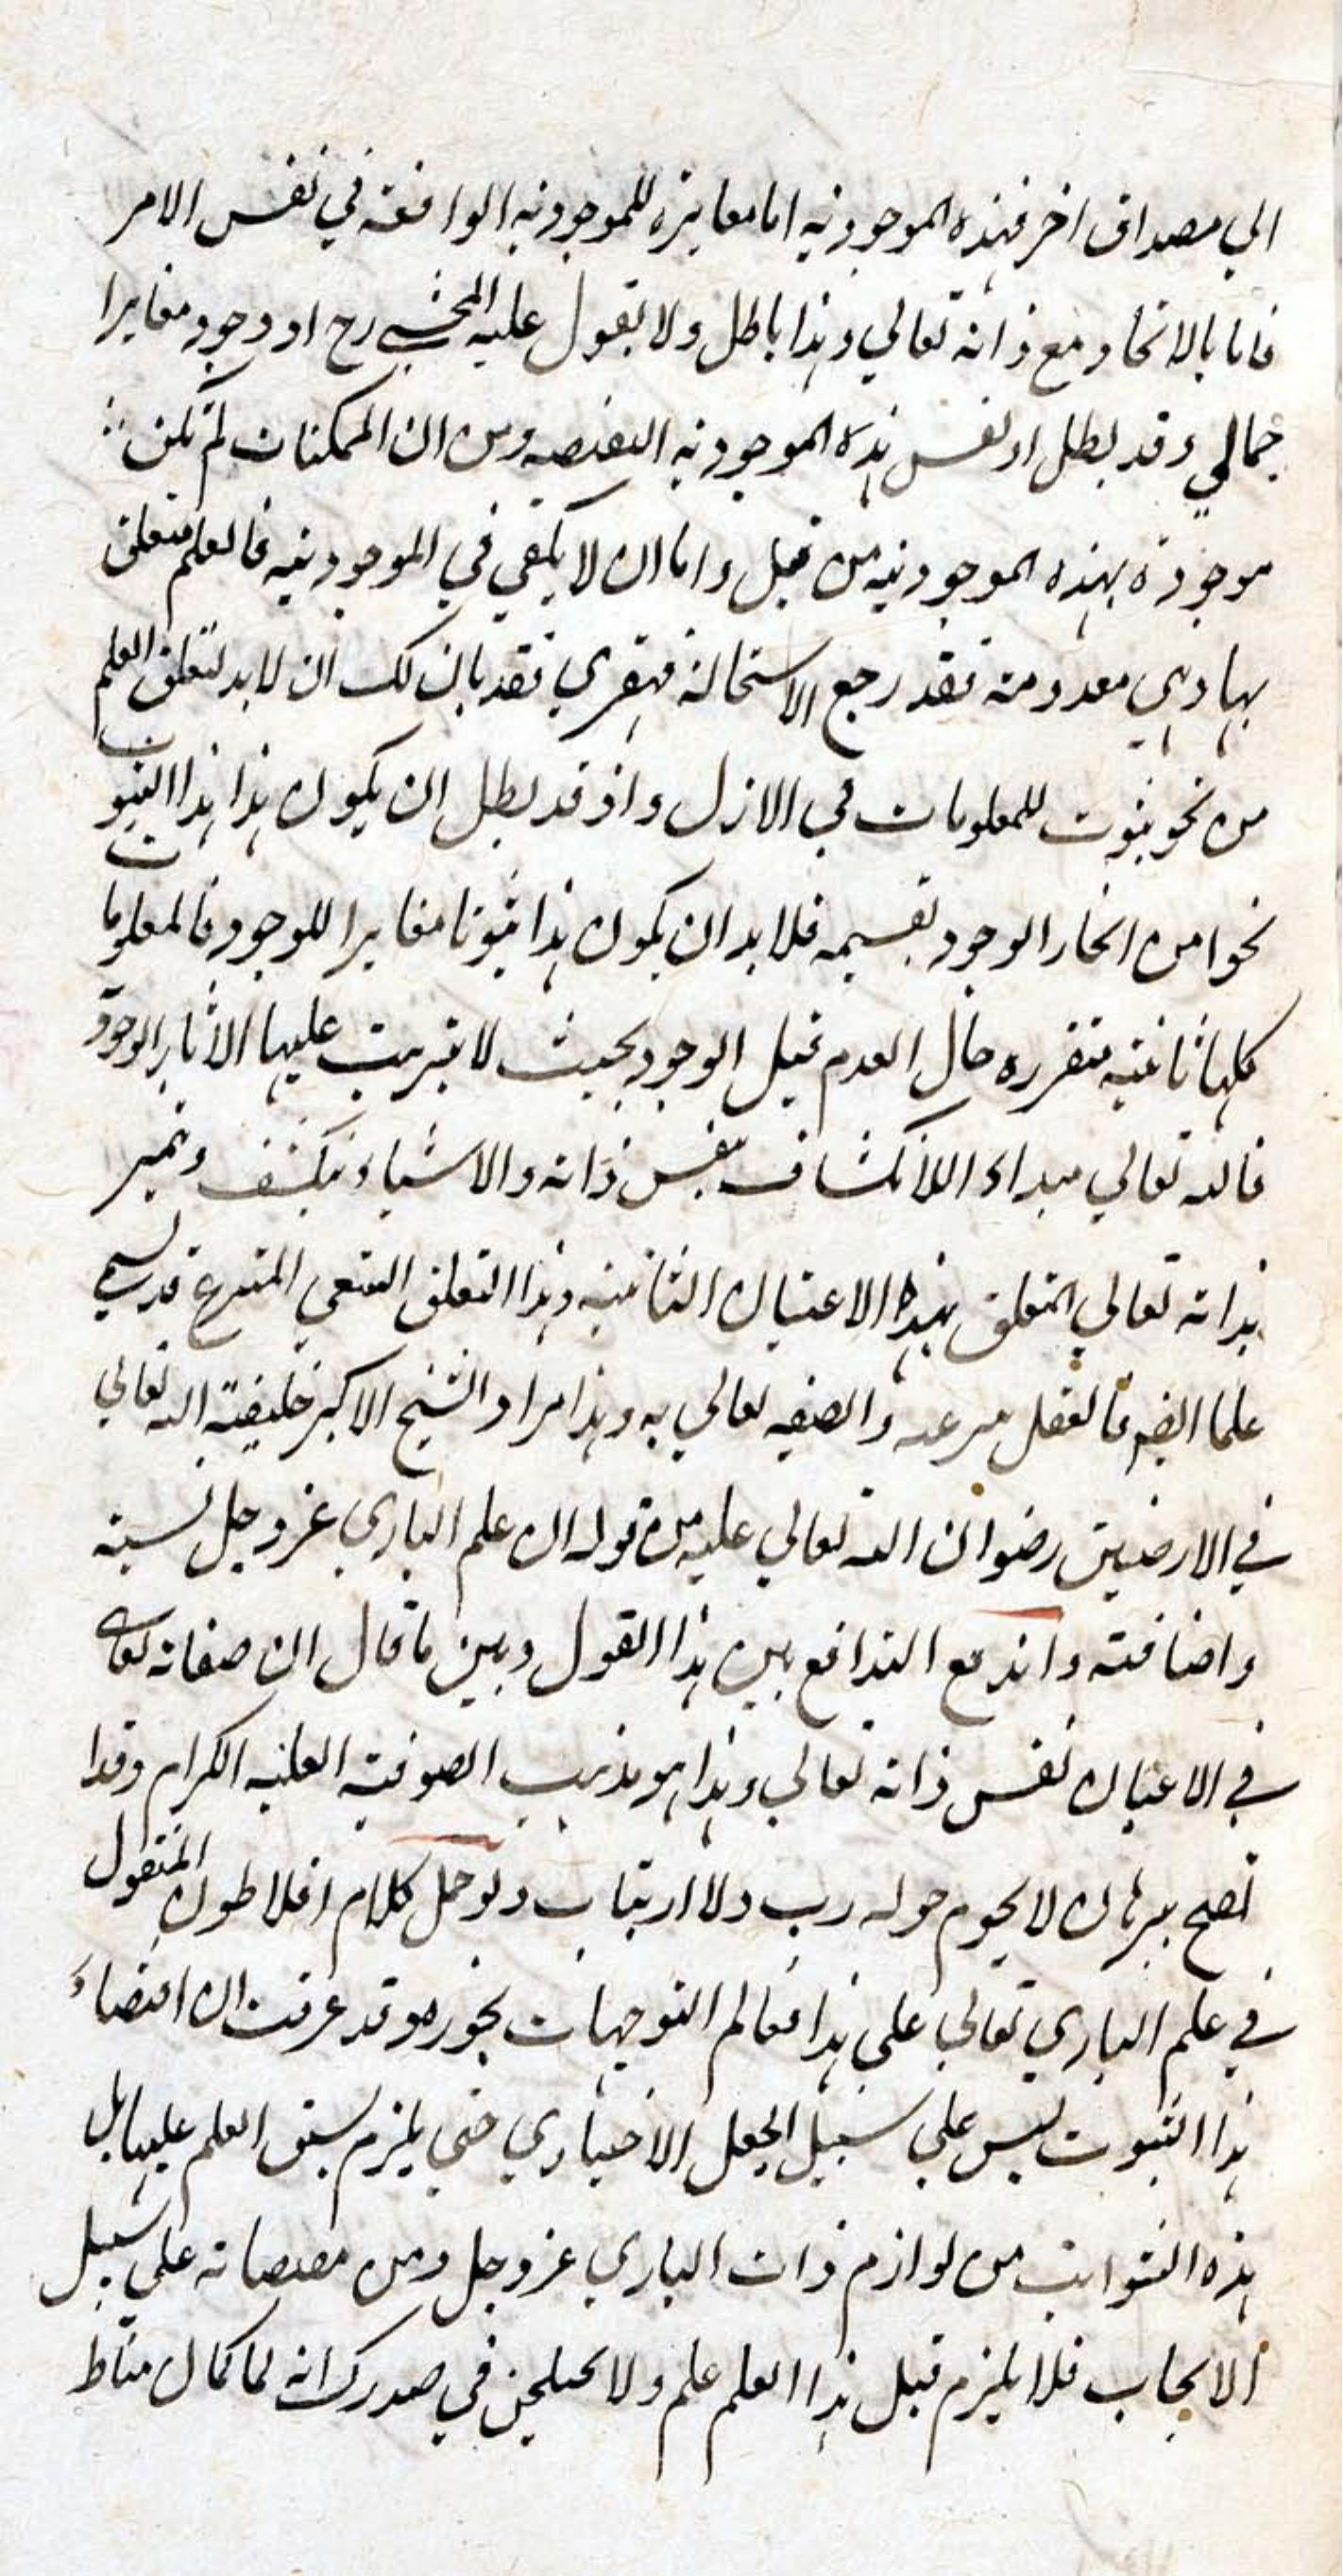 الي مصداق اخر فهذه الموجودية اما مغايرة للموجودية الواقعة في نفس الامر
فاما بالاتحاد مع ذاته تعالي وهذا باطل ولا يقول عليه المحشي رح او وجود مغايرا
جمالي وقد بطل او نفس هذه الموجودية ومن ان الممكنات لم تكن
موجودة بهذه الموجودية من قبل واما ان لا يكفي في الموجودية فالعلم متعلق
بها وهي معدومة فقد رجع الاستحالة قهقري فقد بان لك ان لا بد لتعلق العلم
من نحو ثبوت للمعلومات في الازل واذ قد بطل ان يكون هذا هذا الثبوت
نحوا من انحاء الوجود بقسيمه فلا بد ان يكون هذا ثبوتا مغايرا للوجود فالمعلومات
كلها ثابتة متقررة حال العدم قبل الوجود بحيث لا تترتب عليها الاثار الوجود
فالله تعالي مبداء اللانكشاف بنفس ذاته والاشياء تنكشف وتميز
بذاته تعالي المتعلق بهذا الاعيان الثابتة وهذا التعلق قد يسمي
علما ايضا فالعقل والصفة تعالي به وهذا مراد الشيخ الاكبر خليفة الله تعالي
في الارضين رضوان الله تعالي عليه من قوله ان علم الباري عز وجل نسبة
واضافة واندفع التدافع بين هذا القول وبين ما قال ان صفاته تعالي
في الاعيان نفس ذاته تعالي وهذا هو مذهب الصوفية العلية الكرام وقدا
تضح ببرهان لا يحوم حوله ريب ولا ارتياب ولو حمل كلام افلاطون المنقول
في علم الباري تعالي علي هذا فعالم التوجيهات يجوزه وقد عرفت ان اقتضاء
هذا الثبوت ليس علي سبيل الجعل الاختياري حتي يلزم سبق العلم عليها بل
هذه الثوابت من لوازم ذات الباري عز وجل ومن مقتضياته علي سبيل
الايجاب فلا يلزم قبل هذا العلم علم ولا يختلجن في صدرك انه لما كان مناط